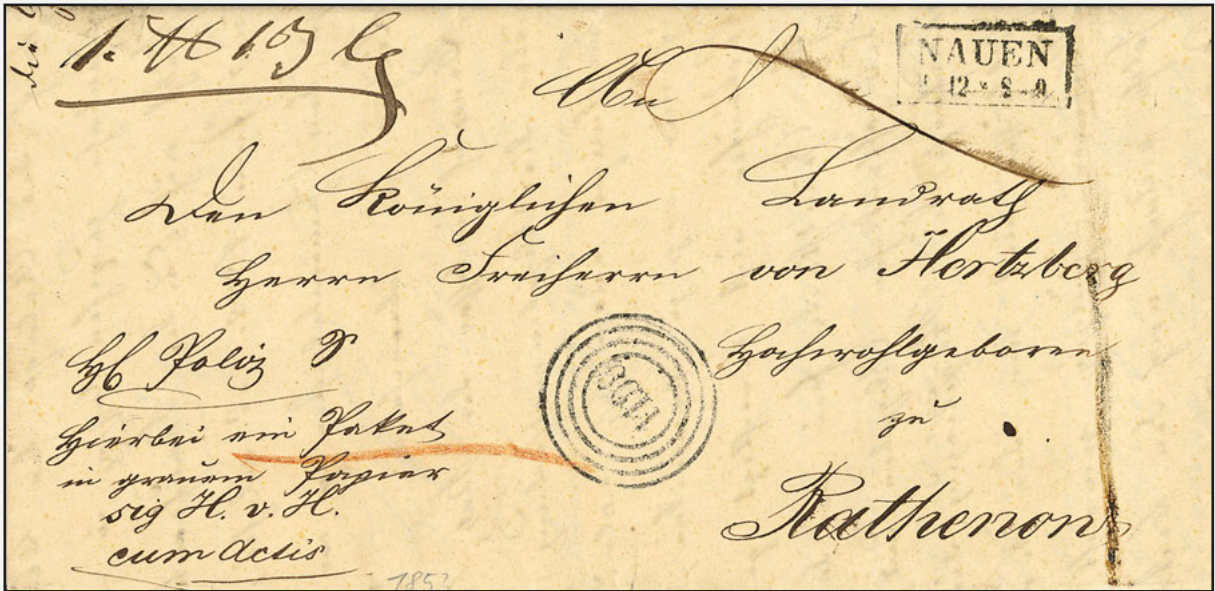 NAUEN
12 * 8-9
An
Den Königlichen Landrath
Herrn Freiherrn von Hertzberg
Hochwohlgeboren
zu
Rathenow
Hierbei ein Paket
in grauem Papier
sig H. v. H.
cum Actis